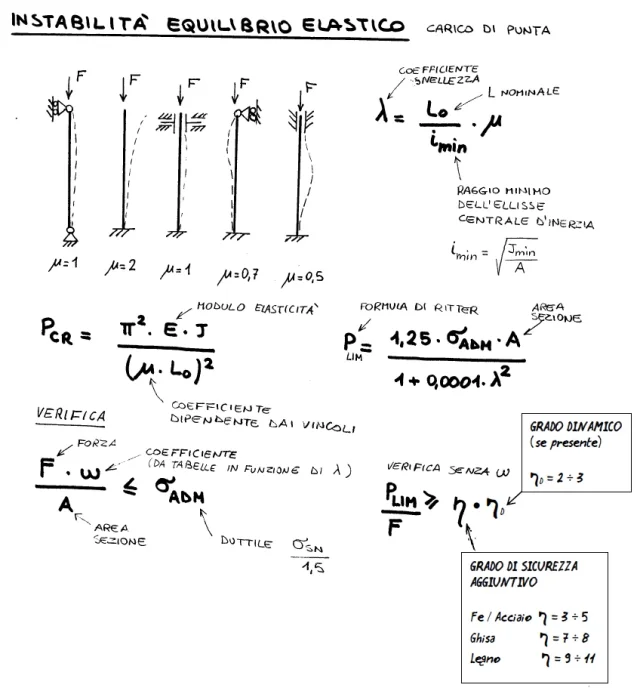 INSTABILITÀ EQUILIBRIO ELASTICO CARICO DI PUNTA
F F F F F
μ=1 μ=2 μ=1 μ=0,7 μ=0,5
COEFFICIENTE
SNELLEZZA
L NOMINALE
λ = Lo / imin · μ
RAGGIO MINIMO
DELL'ELLISSE
CENTRALE D'INERZIA
imin = √ Jmin / A
MODULO ELASTICITÀ
PCR = π². E. J / (μ. Lo)²
COEFFICIENTE
DIPENDENTE DAI VINCOLI
FORMULA DI RITTER
AREA
SEZIONE
PLIM = 1,25. σADM. A / 1 + 0,0001. λ²
VERIFICA
FORZA
COEFFICIENTE
(DA TABELLE IN FUNZIONE DI λ)
F . ω / A ≤ σADM
AREA
SEZIONE
DUTTILE σSN / 1,5
VERIFICA SENZA ω
PLIM / F ≥ η • ηD
GRADO DINAMICO
(se presente)
ηD = 2÷3
GRADO DI SICUREZZA
AGGIUNTIVO
Fe / Acciaio η = 3 ÷ 5
Ghisa η = 7 ÷ 8
Legno η = 9 ÷ 11